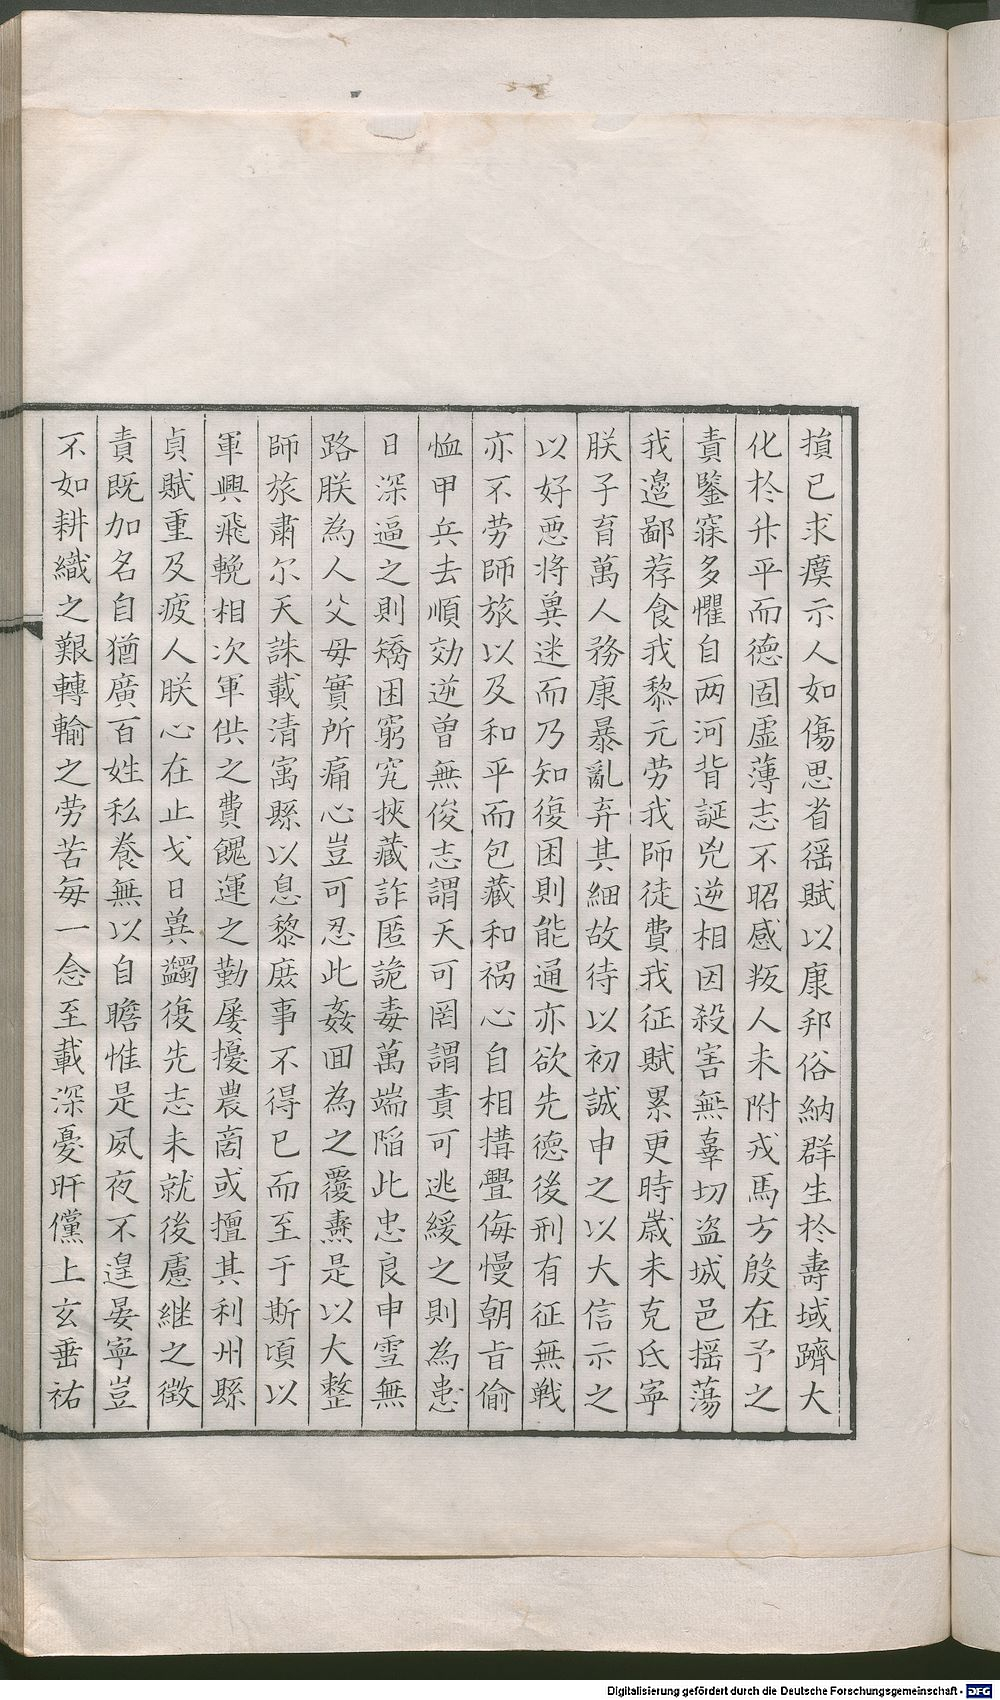 損已求瘼示人如傷思省徭賦以康邦俗納群生於壽域躋大
化於升平而德固虛薄志不昭感叛人未附戎馬方殷在予之
責鑒寐多懼自两河背誕兇逆相因殺害無辜切盗城邑揺蕩
我邊鄙荐食我黎元劳我師徒費我征賦累更時嵗未克氐寧
朕子育萬人務康暴亂弃其細故待以初誠申之以大信示之
以好悪将兾迷而乃知復困則能通亦欲先徳後刑有征無戦
亦不劳師旅以及和平而包藏和祸心自相搆舋侮慢朝旨偷
恤甲兵去順効逆曽無俊志謂天可罔謂責可逃緩之則為患
日深逼之則矯困窮究挾藏詐匿詭毒萬端陷此忠良申雪無
路朕為人父毋實所痛心豈可忍此姦囬為之覆燾是以大整
師旅肅尔天誅載清㝢縣以息黎庶事不得已而至于斯頃以
軍興飛輓相次軍供之費餽運之勤屡擾農啇或擅其利州縣
貞賦重及疲人朕心在止戈日兾蠲復先志未就後慮継之徴
責既加名自猶廣百姓私飬無以自贍惟是夙夜不遑晏寧豈
不如耕織之艱轉輸之劳苦毎一念至載深憂旰儻上玄垂祐
Digitalisierung gefördert durch die Deutsche Forschungsgemeinschaft - DFG